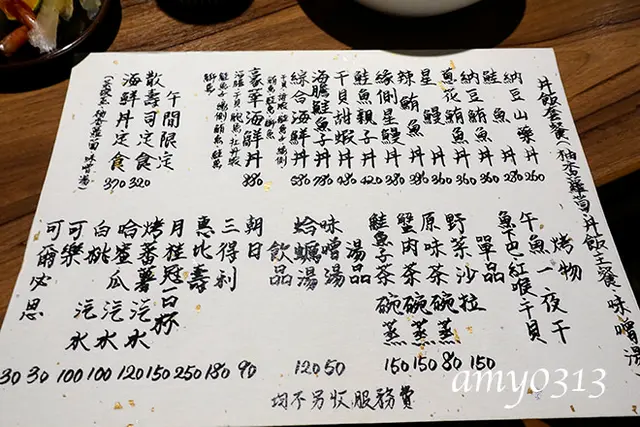 丼飯套餐(柚香蘿蔔丼飯主餐味噌湯
納豆山藥丼 260
鮭魚丼 280
納豆鮪魚丼 360
蔥花鮪魚丼 360
星鰻丼 360
辣鮪魚丼
緣側星鰻丼
鮭魚親子丼 420
干貝甜蝦丼 480
海膽鮭魚子丼 780
綜合海鮮丼 580
豪華海鮮丼
午間限定
散壽司定食 320
海鮮丼定食 370
烤物
午魚一夜干
魚下巴 紅喉 干貝
單品
野菜沙拉 150
原味茶碗蒸 80
蟹肉茶碗蒸 150
鮭魚子茶碗蒸 150
湯品
味噌湯 50
蛤蠣湯 120
飲品
朝日 90
三得利 180
惠比壽 250
月桂冠一杯 150
烤蕃薯汽水 120
哈蜜瓜汽水 100
白桃汽水 100
可樂 30
可爾必思 30
均不另收服務費
amy0313